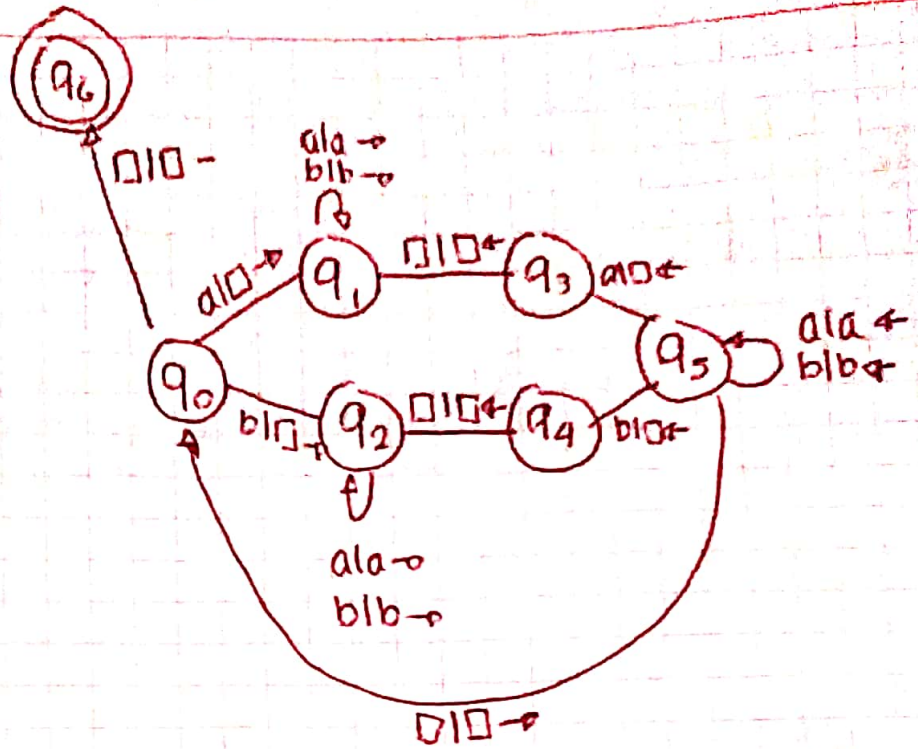 q₆
□|□ -
a|a →
b|b →
a|□ →
q₁
□|□ ←
q₃
a|□ ←
q₀
q₅
a|a ←
b|b ←
b|□ →
q₂
□|□ ←
q₄
b|□ ←
a|a →
b|b →
□|□ →